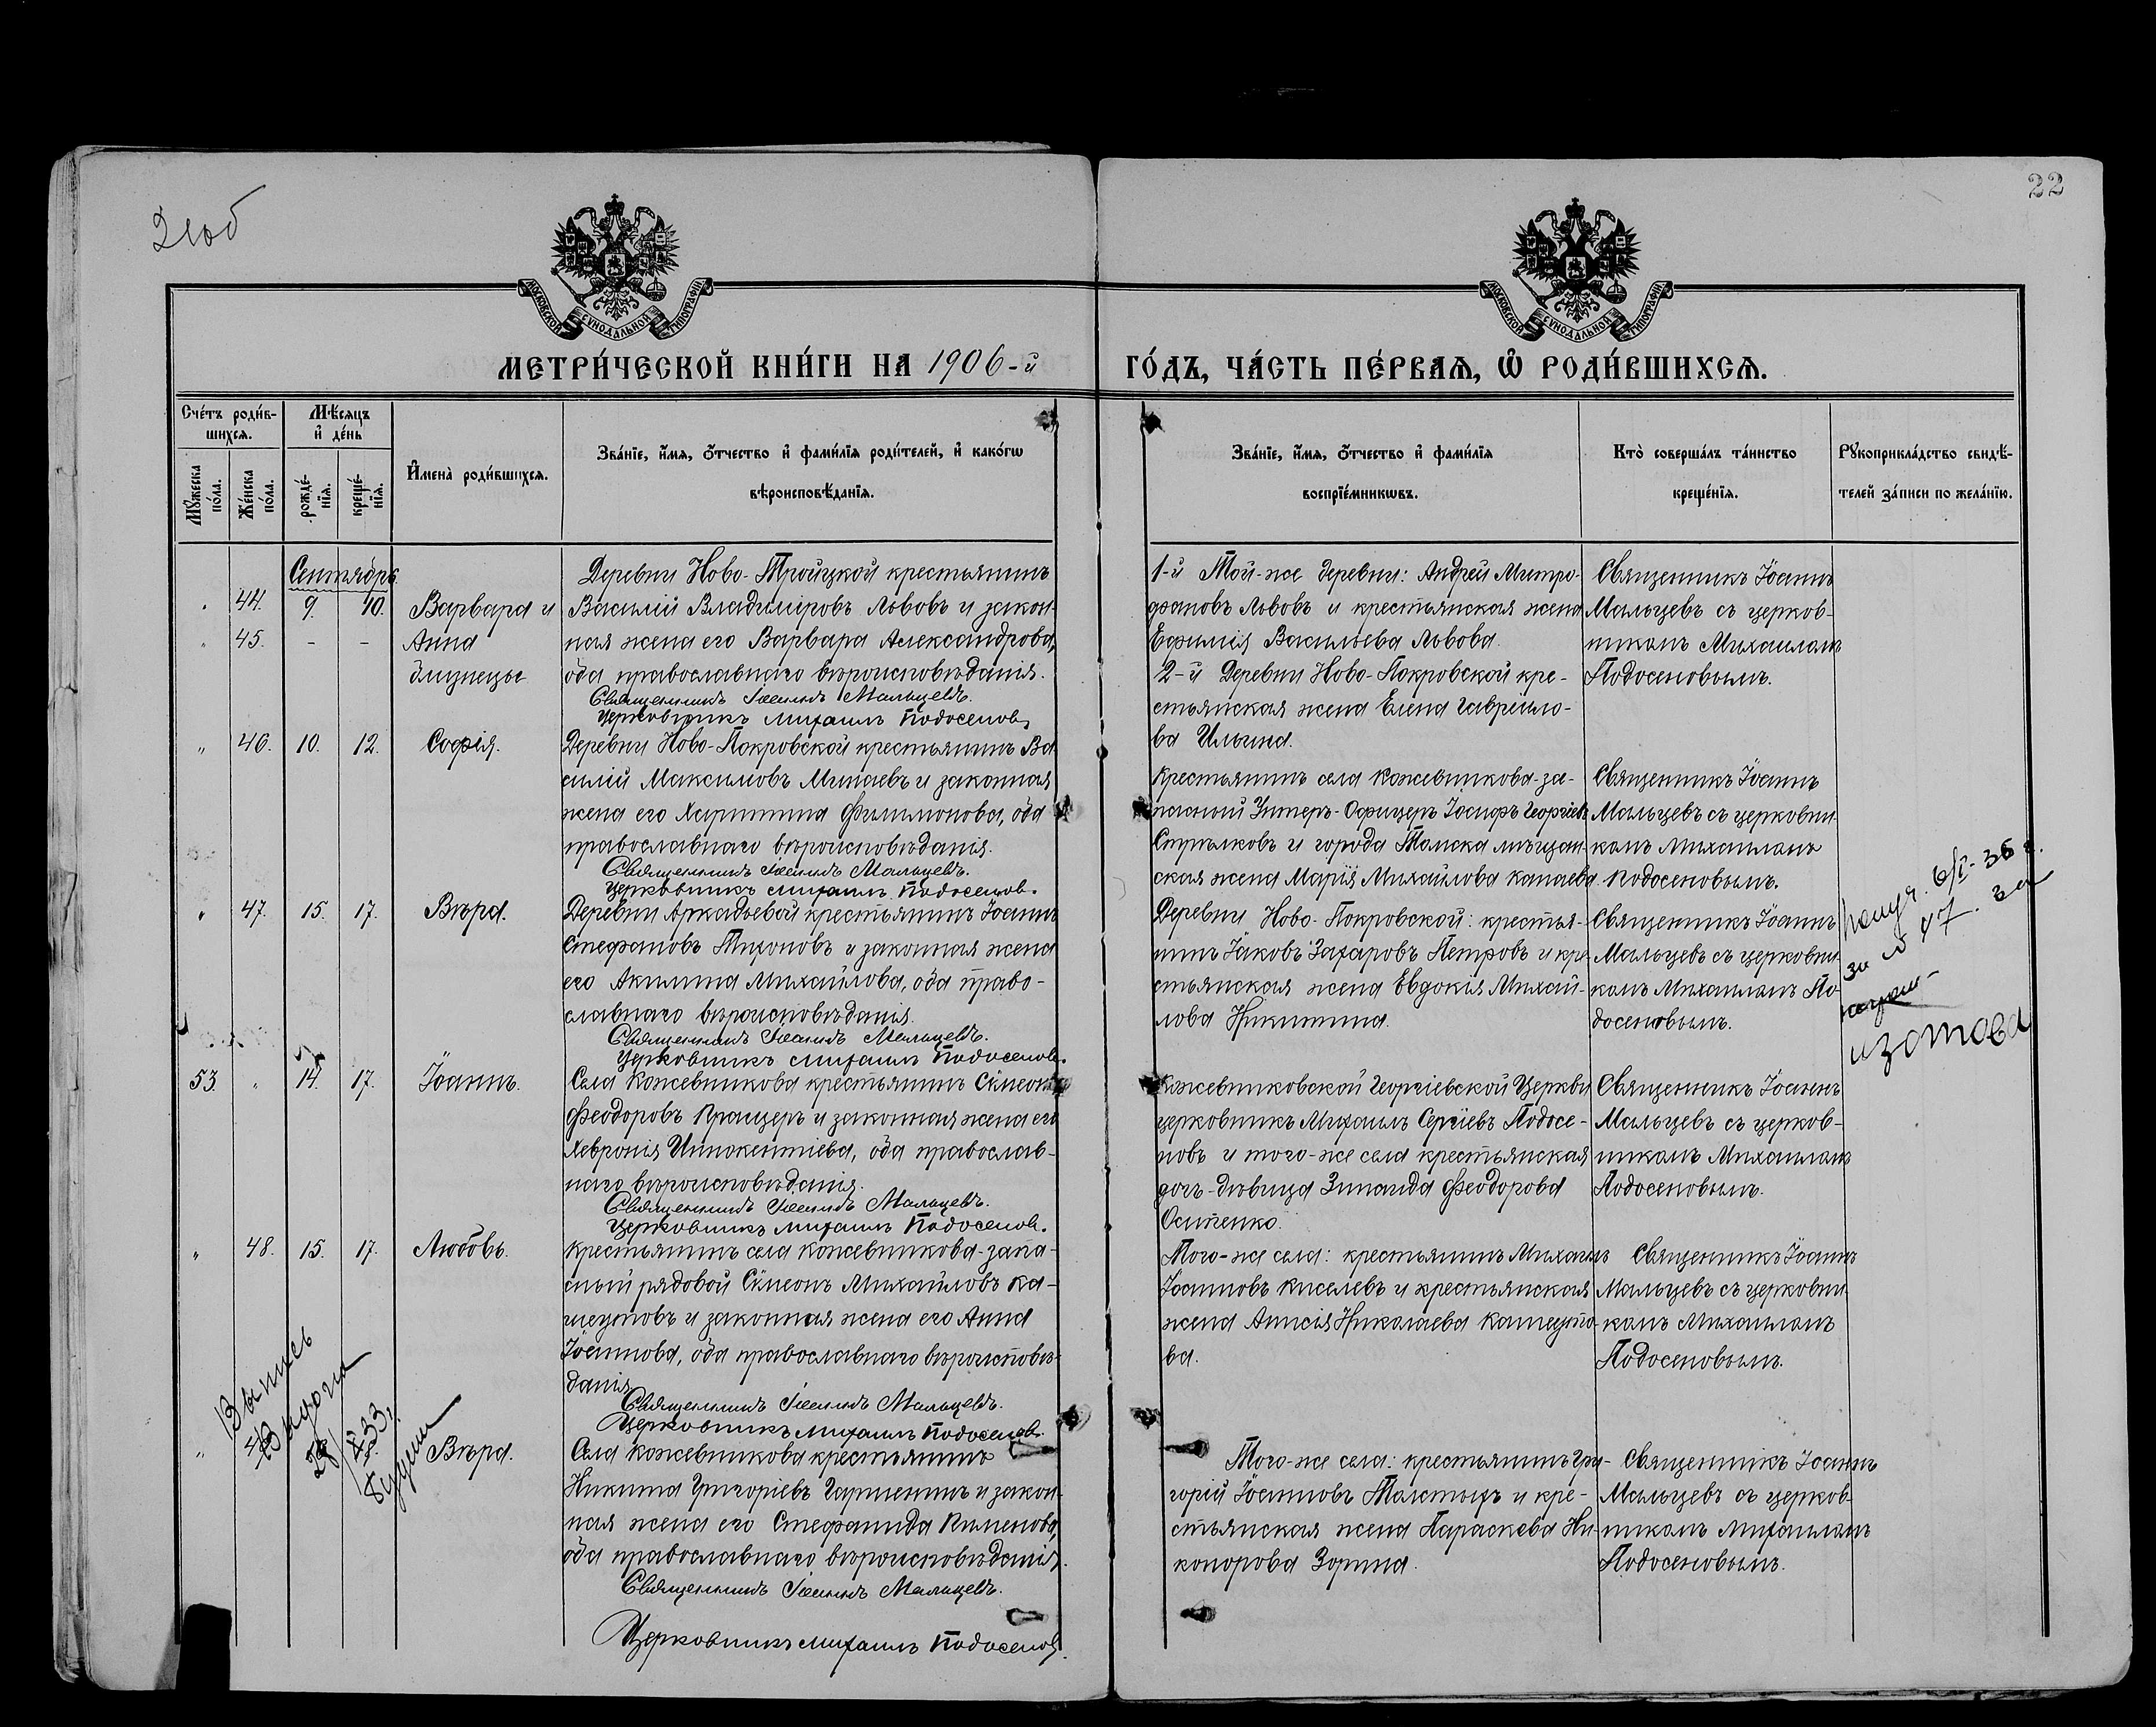 21об
22
МОСКОВСКОЙ СѴНОДАЛЬНОЙ ТИПОГРАФІИ
МОСКОВСКОЙ СѴНОДАЛЬНОЙ ТИПОГРАФІИ
МЕТРИ́ЧЕСКОЙ КНИ́ГИ НА 1906-й
ГО́ДЪ, ЧА́СТЬ ПЕ́РВАѦ, Ѽ РОДИ́ВШИХСѦ.
Сче́тъ роди́в-
шихсѧ.
Мѣ́сѧцъ
и҆ де́нь
Мꙋ́жеска по́ла.
Же́нска по́ла.
рожде́-
нїѧ.
креще́-
нїѧ.
И҆мена̀ роди́вшихсѧ.
Зва́нїе, и҆́мѧ, ѻ҆́тчество и҆ фами́лїѧ роди́телей, и҆ како́гѡ
вѣроисповѣ́данїѧ.
Зва́нїе, и҆́мѧ, ѻ҆́тчество и҆ фами́лїѧ
воспрїе́мникѡвъ.
Кто̀ соверша́лъ та́инство
креще́нїѧ.
Рꙋкоприкла́дство свидѣ́-
телей за́писи по жела́нїю.
Сентябрь.
" 44. 9. 10. Варвара и
" 45. - - Анна
близнецы
Деревни Ново-Троицкой крестьянинъ
Василій Владиміровъ Львовъ и закон-
ная жена его Варвара Александрова,
оба православнаго вѣроисповѣданія.
Священникъ Іоаннъ Мальцевъ.
Церковникъ Михаилъ Подосенов.
1-й Той-же деревни: Андрей Митро-
фановъ Львовъ и крестьянская жена
Евфимія Васильева Львова.
2-й Деревни Ново-Покровской кре-
стьянская жена Елена Гавріило-
ва Ильина.
Священникъ Іоаннъ
Мальцевъ съ церков-
никомъ Михаиломъ
Подосеновымъ.
" 46. 10. 12. Софія.
Деревни Ново-Покровской крестьянинъ Ва
силій Максимовъ Минаевъ и законная
жена его Харитина Филимонова, оба
православнаго вѣроисповѣданія.
Священникъ Іоаннъ Мальцевъ.
Церковникъ Михаилъ Подосенов.
Крестьянинъ села Кожевникова-за-
пасный Унтеръ-Офицеръ Іосифъ Георгіевъ
Стрѣлковъ и города Томска мѣщан-
ская жена Марія Михайлова Канаева.
Священникъ Іоаннъ
Мальцевъ съ церковни-
комъ Михаиломъ
Подосеновымъ.
" 47. 15. 17. Вѣра.
Деревни Аркадьевой крестьянинъ Іоаннъ
Стефановъ Тихоновъ и законная жена
его Акилина Михайлова, оба право-
славнаго вѣроисповѣданія.
Священникъ Іоаннъ Мальцевъ.
Церковникъ Михаилъ Подосенов.
Деревни Ново-Покровской: крестья-
нинъ Іаковъ Захаровъ Петровъ и кре-
стьянская жена Евдокія Михай-
лова Никитина.
Священникъ Іоаннъ
Мальцевъ съ церковни-
комъ Михаиломъ По-
досеновымъ.
за № 47. за
изотова
53. " 14. 17. Іоаннъ.
Села Кожевникова крестьянинъ Симеонъ
Феодоровъ Кращеръ и законная жена его
Хевронія Иннокентіева, оба православ-
наго вѣроисповѣданія.
Священникъ Іоаннъ Мальцевъ.
Церковникъ Михаилъ Подосенов.
Кожевниковской Георгіевской Церкви
церковникъ Михаилъ Сергіевъ Подосе-
новъ и того-же села крестьянская
дочь-дѣвица Зинаида Феодорова
Осипенко.
Священникъ Іоаннъ
Мальцевъ съ церков-
никомъ Михаиломъ
Подосеновымъ.
" 48. 15. 17. Любовь.
Крестьянинъ села Кожевникова-запа-
сный рядовой Симеонъ Михайловъ Ка-
шеутовъ и законная жена его Анна
Іоаннова, оба православнаго вѣроисповѣ-
данія
Священникъ Іоаннъ Мальцевъ.
Церковникъ Михаилъ Подосенов.
Того-же села: крестьянинъ Михаилъ
Іоанновъ Киселевъ и крестьянская
жена Анисія Николаева Кашеуто-
ва.
Священникъ Іоаннъ
Мальцевъ съ церковни-
комъ Михаиломъ
Подосеновымъ.
Выпись
Выдана
" Вѣра.
Села Кожевникова крестьянинъ
Никита Григоріевъ Гаршенинъ и закон-
ная жена его Стефанида Пименова,
оба православнаго вѣроисповѣданія.
Священникъ Іоаннъ Мальцевъ.
Церковникъ Михаилъ Подосенов.
Того-же села: крестьянинъ Гри-
горій Іоанновъ Толстыхъ и кре-
стьянская жена Параскева Ни-
конорова Зорина.
Священникъ Іоаннъ
Мальцевъ съ церков-
никомъ Михаиломъ
Подосеновымъ.